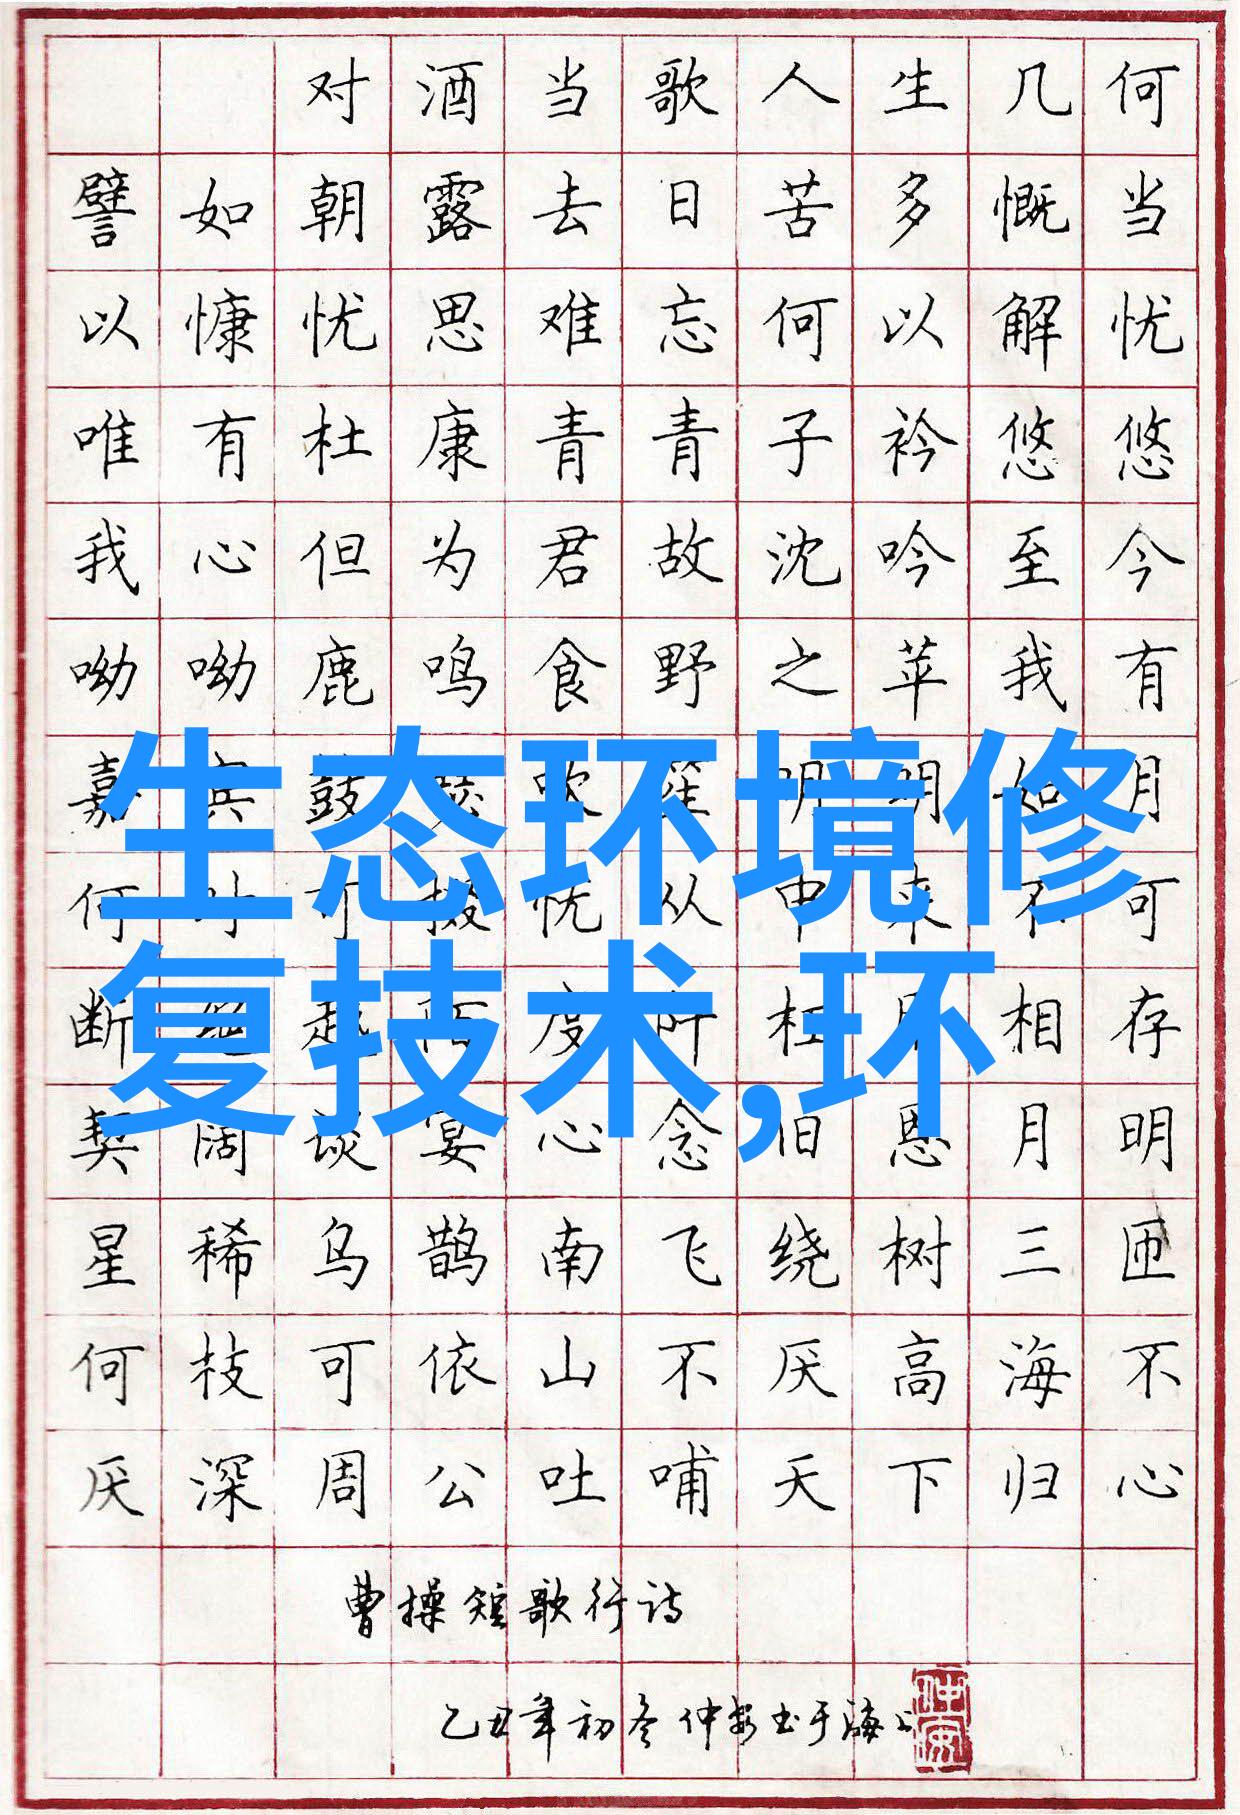 对酒当歌人生几何
譬如朝露去日苦多慨当
以慷忧思难忘何以解忧
唯有杜康青青子衿悠悠
我心但为君故沈吟至今
呦呦鹿鸣食野之苹我有
嘉宾鼓瑟吹笙明明如月
生态环境修
何时可掇忧从中来不可
断绝越陌度阡枉用相存
复技术,环
契阔谈宴心念旧恩月明
星稀乌鹊南飞绕树三匝
何枝可依山不厌高海不
厌深周公吐哺天下归心
曹操短歌行诗
乙丑年初冬仲安书于海上
仲安